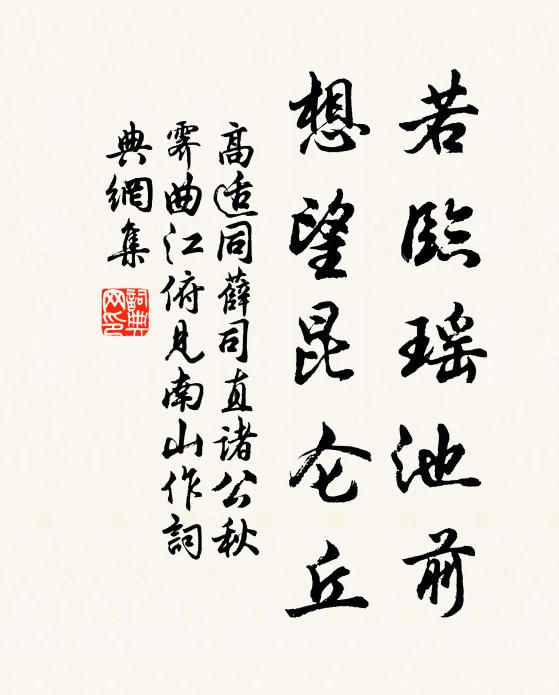 若臨瑶池前
想望昆仑丘
高适同薛司直诸公秋
霁曲江俯見南山作詞
典網集
詞典网印